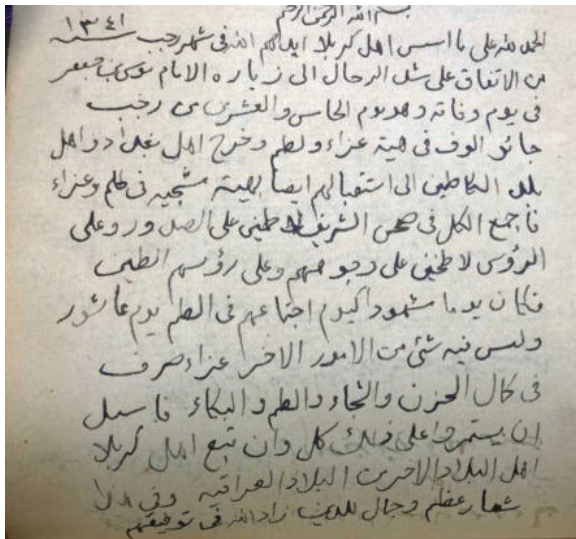 بسم الله الرحمن الرحيم
١٣٤١
الحمد لله على ما اسس اهل كربلا ايدهم الله في شهر رجب سنة
من الاتفاق على شد الرحال الى زيارة الامام موسى بن جعفر
في يوم وفاته وهو يوم الخامس والعشرين من رجب
جائوا الوف في هيئة عزاء ولطم وخرج اهل بغداد واهل
بلد الكاظمين الى استقبالهم ايضا بهيئة مشجيه في لطم وعزاء
فاجمع الكل في صحن الشريف لاطمين على الصدور وعلى
الرؤس لاطخين على وجوههم وعلى رؤسهم الطين
فكان يوما مشهودا كيوم اجتماعهم في الطم يوم عاشور
وليس فيه شئ من الامور الاخر عزاء صرف
في كمال الحزن والطم والبكاء
ان يستمروا على ذلك كل وان تبع اهل كربلا
اهل البلاد الاخرى البلاد العراقيه وفي
شعار عظيم وجمال للمذهب زاد الله في توفيقهم